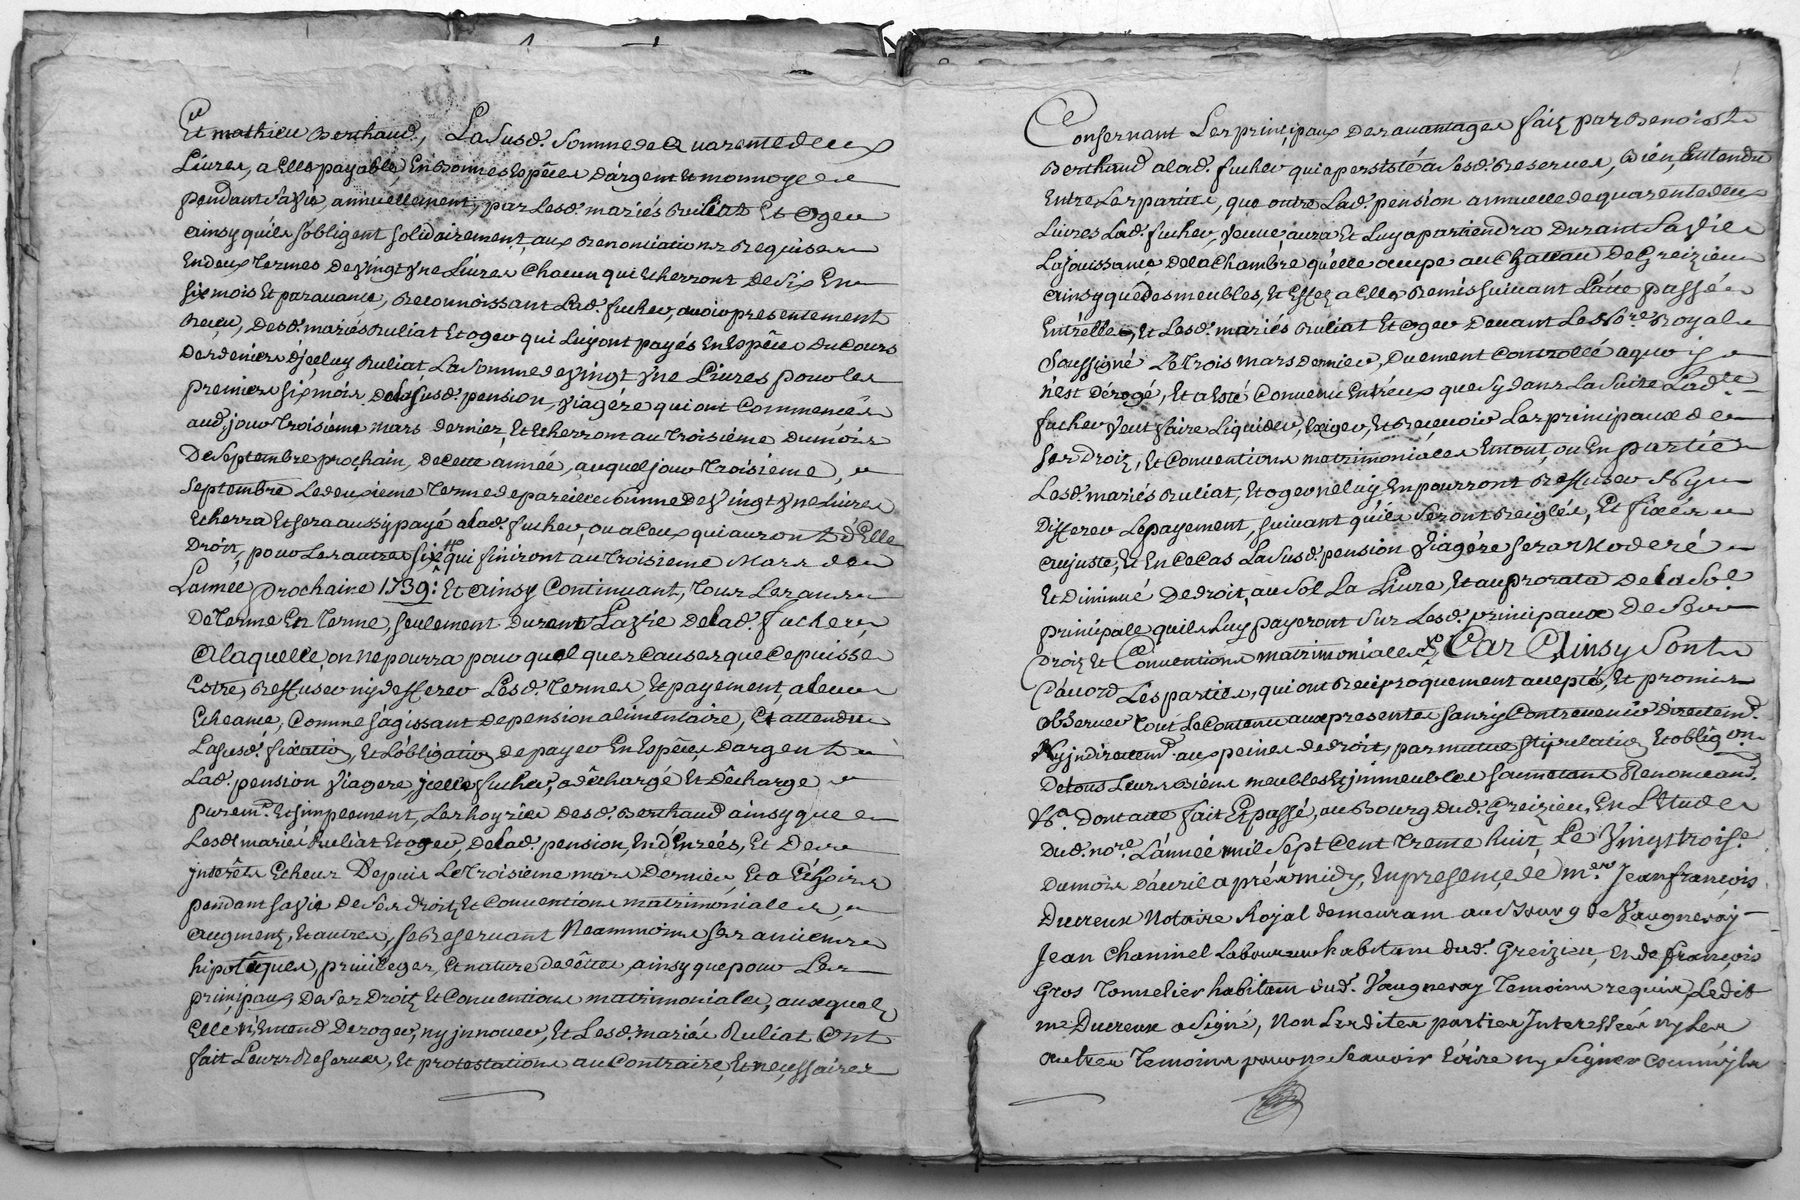 Et mathieu Berthaud, La susd. somme de Quarentedeux
Livres, a Elle payable, En bonnes Espêces D'árgent Et monnoye
pendant sa vie annuellement, par Lesd. mariés Ruliat Et Oger
ainsy qu'ils s'obligent solidairement, aux Renonciations Requises
En deux Termes De Vingt Vne Livres Chacun qui Echerront de six En
six mois Et par avance, Reconnoissant Lad. fucher, avoir presentement
Reçeu, Desd. mariés Ruliat Et oger qui Luy ont payés En Espêces du Cours
Des deniers d'jceluy Ruliat La somme de Vingt Vne Livres pour les
premiers six mois De la susd. pension, Viagére qui ont Commencés
aud. jour Troisiéme mars dernier, Et Echerront au Troisiéme Du mois
De Septembre prochain, de cette année, auquel jour Troisieme,
Septembre Le deuxieme Terme de pareille somme De Vingt Vne Livres
Echerra Et sera aussy payé a lad. fucher, ou a Ceux qui auront d'Elle
Droit, pour Les autres six m. qui finiront au Troisieme Mars de
L'année prochaine 1739. Et Ainsy Continuant, Tous Les ans
De Terme En Terme, seulement Durant La Vie de lad. fucher
A laquelle on ne pourra pour quel ques Causes que Ce puisse
Estre, Reffuser ny defferer Lesd. Termes, Et payement, a leur
Echeance, Comme s'ágissant de pension alimentaire, Et attendu
La susd. fixation, Et L'obligation de payer En Espêces D'argent
Lad. pension Viagere, jcelle fucher, a dêchargé Et Dêcharge
purem. Et simplement, Les hoyries Desd. Berthaud ainsy que
Lesd. mariés Ruliat Et oger, De lad. pension, En dEnrées, Et De
jnterêts Echeux Depuis Le Troisiéme mars Dernier, Et a Echoir
pendant sa vie De ses droits Et Conventions matrimoniales,
augment, Et autres, se Reservant Neammoins ses anciens
hipotêques, privileges, Et nature de dêttes, ainsy que pour Les
principaux De ses Droits Et Conventions matrimoniales, auxquels
Elle n'Entend Deroger, ny jnnover, Et Lesd. mariés Ruliat Ont
fait Leurs Reserves, Et protestations au Contraire, Et neçessaires
Consernant Les principaux Des avantages faits par Benoist
Berthaud a lad. fucher qui a persisté a sesd. Reserves, Bien, Entendu
Entre Les parties, que outre Lad. pension annuelle de quarente deux
Livres Lad. fucher, Veuve, aura Et Luy apartiendra Durant sa Vie
La jouissance De la Chambre qu'elle occupe au Chateau De Greizieu
ainsy que des meubles, Et Effets a Elle Remis suivant L'acte passé
Entr'elle, Et Lesd. mariés Ruliat Et Oger Devant Le No.re Royal
soussigné Le Trois mars Dernier, Duement Controllé a quoi il
n'est Dérogé, Et a Esté Convenu Entr'eux que sy dans La suite Lad.te
fucher Veut faire Liquider, Exiger, Et Reçevoir Les principaux de
ses Droits, Et Conventions matrimoniales En tout, ou En partie
Lesd. mariés Ruliat, Et oger ne luy En pourront Reffuser Ny
Differer Le payement, suivant qu'ils seront Reiglés, Et fixés
au juste, Et En Ce Cas La susd. pension Viagére sera Moderé
Et Diminué De droit, au Sol La Livre, Et au prorata De la So.e
principale qu'ils Luy payeront sur Lesd. principaux De ses
Droits Et Conventions matrimoniales Car Ainsy sont
D'accord Les parties, qui ont Reciproquement accepté, Et promis
observer Tout Le Contenu aux presentes sans y Contrevenir directem.
Ny jndirectem. aux peines de droit, par mutue stipulation, Et oblig.on
De tous Leurs Biens meubles Et jmmeubles soumettant Renonceant
&.a Dont acte fait Et passé, au Bourg dud. Greizieu, En L'Etude
Dud. no.re L'année mil Sept Cent Trente huit, Le Vingt trois.e
Du mois D'avril aprés midy, En presençe de m.e Jean françois
Ducreux Notaire Royal demeurant au Bourg de Vaugneray
Jean Chaminel Laboureur habitant dud. Greizieu, Et de françois
Gros Tonnelier habitant dud. Vaugneray Temoins requis, Ledit
m.e Ducreux a signé, Non Les dites parties Interessées ny Les
autres Temoins pour ne Scavoir Ecrire ny Signer comm'ils